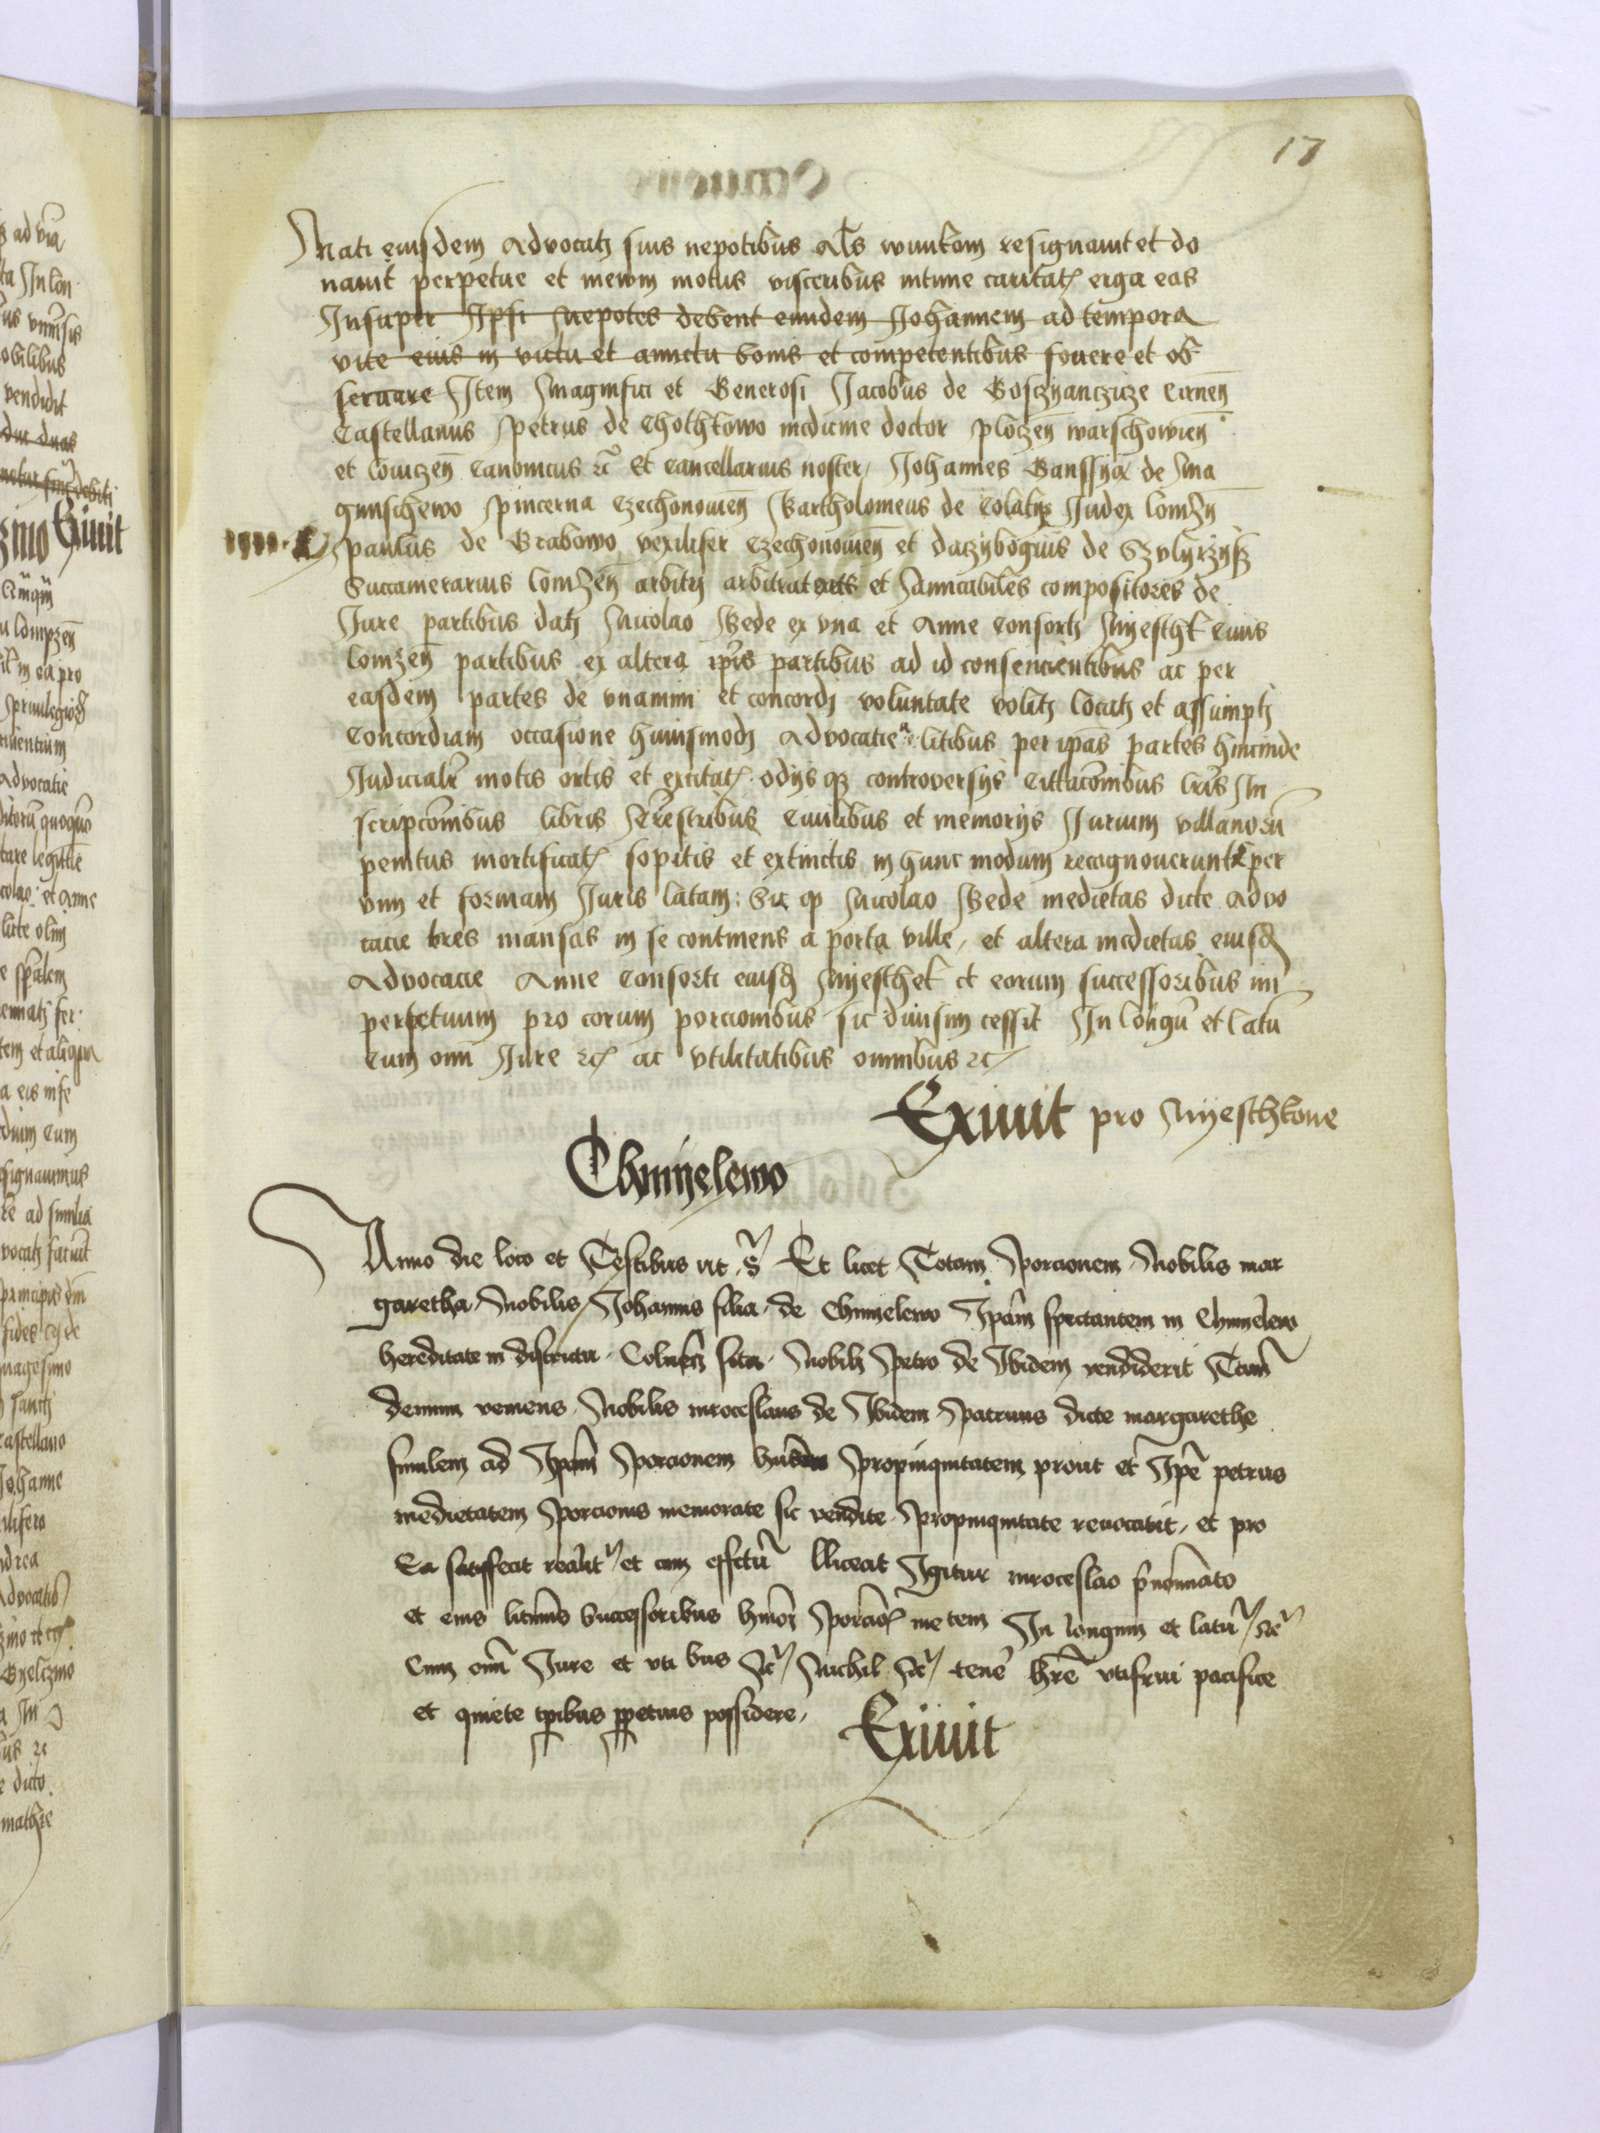 17
Nati eiusdem Advocatj suis nepotibus Als wunkom resignavit et do
navit perpetue et merum motus visceribus intime caritatz erga eas
Insuper Ipsi nepotes debent eundem Johannem ad tempora
vite eius in victu et amictu bonis et competentibus fovere et ob
servare Item Magnifici et Generosi Jacobus de Goszyanczicze Cirnen
Castellanus Petrus de Chothkowo medicine doctor Ploczen warschowien
et lowiczen Canonicus zc et Cancellarius noster Johannes Ganssyor de Ma
gnuschewo Pincerna Czechonowien Bartholomeus de Colaky Judex lomzn
Paulus de Grabowo vexilifer Czechonowien et daczybogius de
Succamerarius lomzen arbitrj et Amicabiles compositores de
Jure partibus datj Nicolao Bede ex una et Anne Consortj Myesthk Civis
lomzen partibus ex altera ipis partibus ad id consencientibus ac per
easdem partes de unanimi et concordj voluntate volitj locatj et assumptj
Concordiam occasione huiusmodj Advocatie litibus per ipas partes hincinde
Judicialr motis ortis et excitatz odys qz controversys Cittacombus lris In
scripcombus libris Trestribus Civilibus et memorys Jurium villanoru
penitus mortificatz sopitis et extinctis in hunc modum recognoverunt per
vim et formam Juris latam: Sic q Nicolao Bede medietas dicte Advo
cacie tres mansos in se continens a porta ville, et altera medietas eiusd
Advocacie Anne Consorti eiusd Myesthek et eorum successoribus im
perpetuum pro eorum porcionibus sic divisim cessit In longu et latu
cum omi Jure zc ac utilitatibus omnibus zc
Exivit pro Myesthkone
Chmyelewo
Anno die loco et Testibus ut S Et licet Totam Porcionem Nobilis mar
garetha Nobilis Johannis filia de Chmyelewo Ipam spectantem in Chmyelewo
hereditate in districtu Colnen sita Nobilj Petro de Ibidem vendiderit Tame
demum veniens Nobilis mroceslaus de Ibidem Patruus dicte margarethe
similem ad Ipam Porcionem Propinquitatem prout et Ipe petrus
medietatem Porcionis memorate sic vendite Propinquitate revocavit, et pro
Ea satisfecit realit et cum effctu lliceat Igitur mroceslao prenominato
et eius litimis Successoribus hmoi Porcioz me tem In longum et latu zc
Cum omi Jure et uti bus zc Nichil zc tene hre utifrui pacifice
et quiete tpribus ppetuis possidere,
Exivit